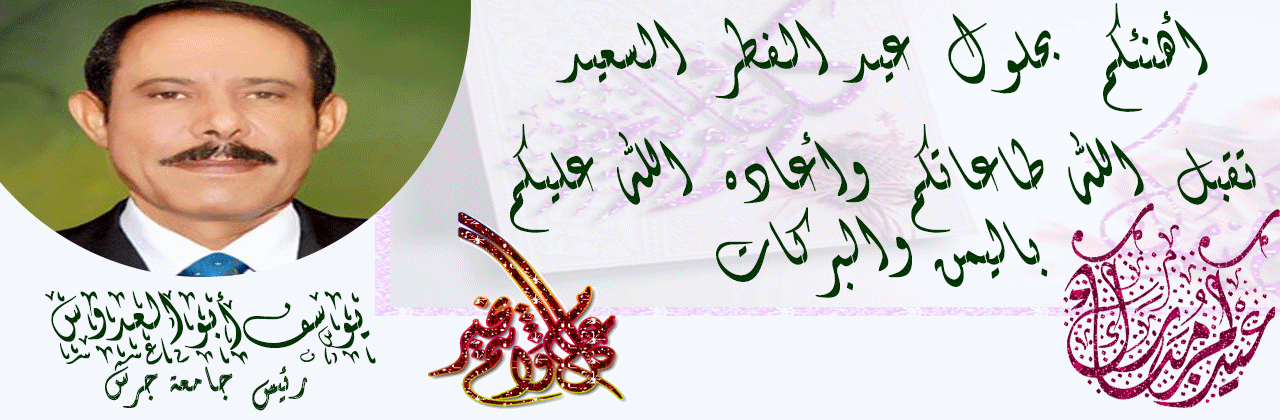 أهنئكم بحلول عيد الفطر السعيد
تقبل الله طاعاتكم وأعاده الله عليكم
باليمن والبركات
كل عام وأنتم بخير
عيدكم مبارك
يوسف أبو العدوس
رئيس جامعة جرش